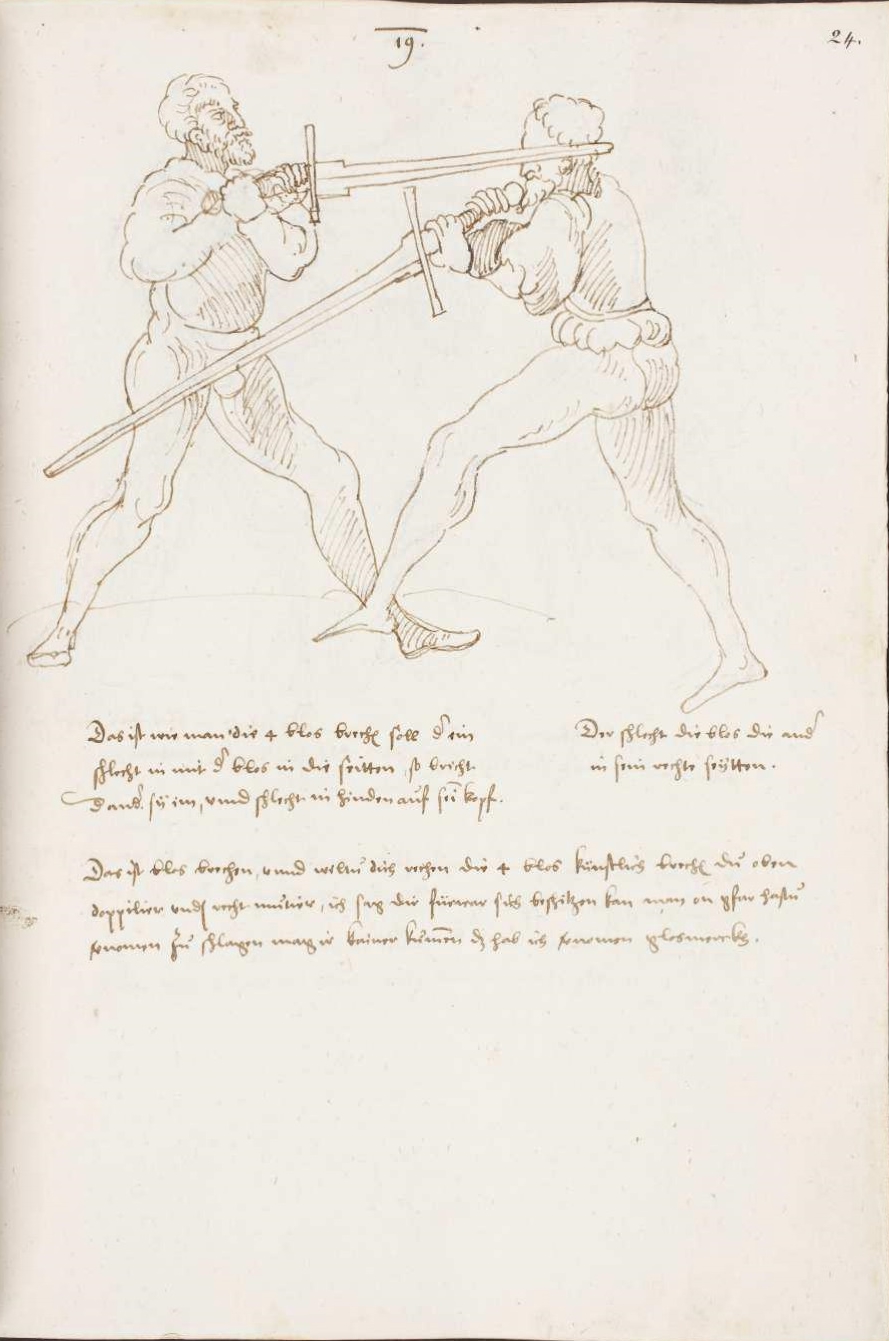 19.
24.
Das ist wie man die 4 blos brechē soll d' ein
schlecht in mit d' blos in die seitten, so bricht
d' and'. sy im, vnnd schlecht in hinden auf sei kopf.
Der schlecht die blos die and'
in sein rechte seytten.
Das ist blos brechen, vnnd wiltu dich rechen die 4 blos künstlich brechē du oben
doppilier vnd recht mutier, ich sag dir fürwar sich beschitzen kan man on gfar hastu
vernomen zu schlagen mag er kainer kumen dz hab ich vernomen